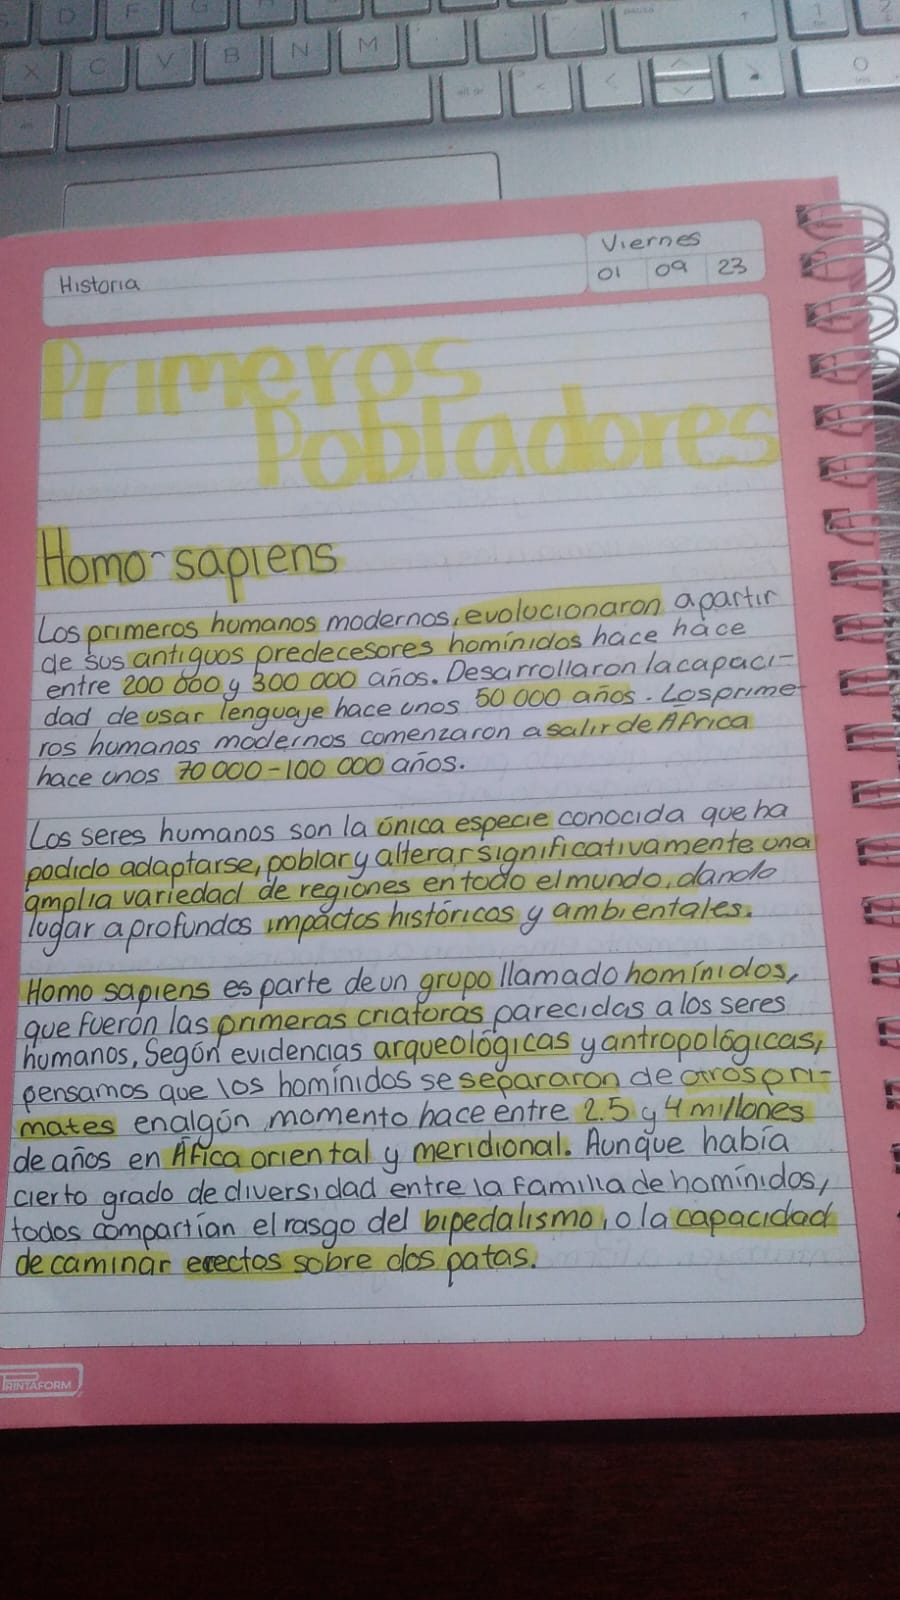 X C V B N M
Historia
Viernes
01 09 23
Primeros
Pobladores
Homo-sapiens
Los primeros humanos modernos, evolucionaron apartir
de sus antiguos predecesores homínidos hace hace
entre 200 000 y 300 000 años. Desarrollaron la capaci-
dad de usar lenguaje hace unos 50 000 años. Los prime-
ros humanos modernos comenzaron a salir de África
hace unos 70 000-100 000 años.
Los seres humanos son la única especie conocida que ha
podido adaptarse, poblar y alterar significativamente una
amplia variedad de regiones en todo el mundo, dando
lugar a profundos impactos históricos y ambientales.
Homo sapiens es parte de un grupo llamado homínidos,
que fuerón las primeras criaturas parecidas a los seres
humanos, Según evidencias arqueológicas y antropológicas,
pensamos que los homínidos se separaron de otros pri-
mates en algún momento hace entre 2.5 y 4 millones
de años en Áfica oriental y meridional. Aunque había
cierto grado de diversidad entre la familia de homínidos,
todos compartían el rasgo del bipedalismo, o la capacidad
de caminar erectos sobre dos patas.
PRINTAFORM